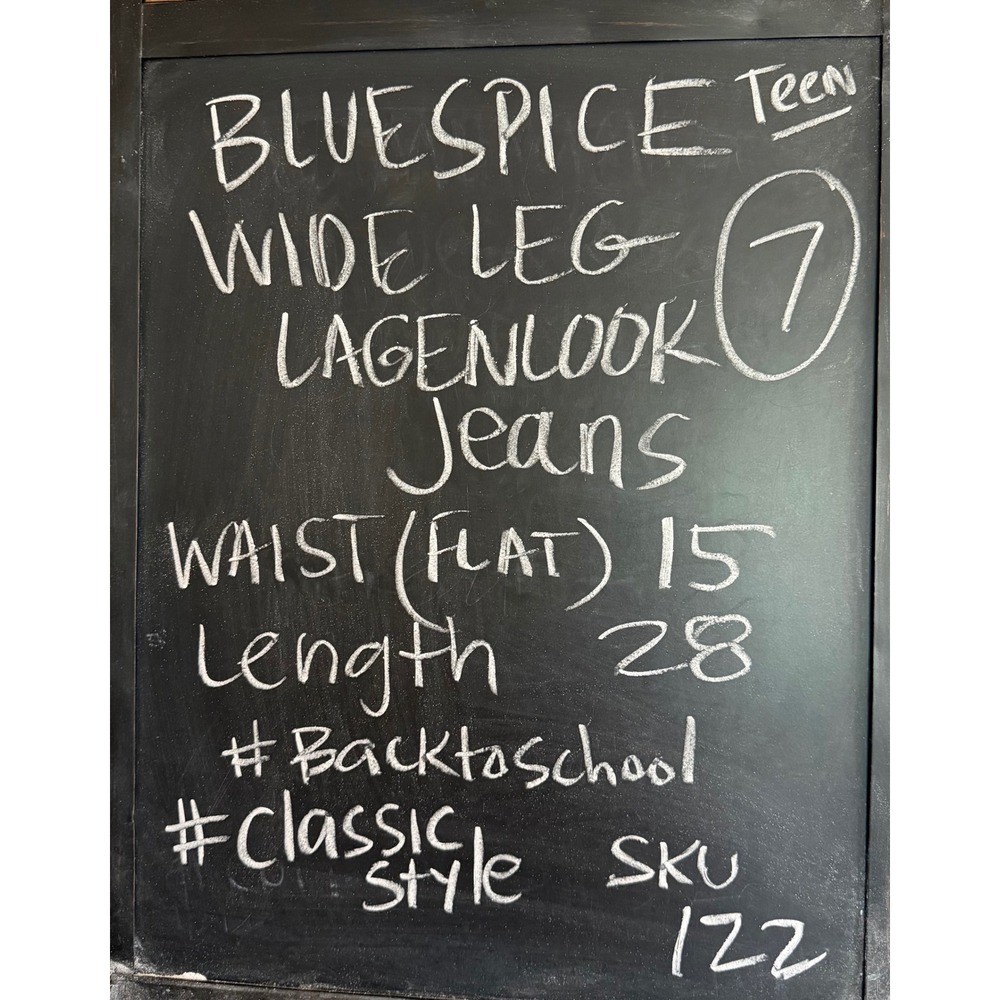 BLUESPICE Teen
WIDE LEG 7
LAGENLOOK
Jeans
WAIST (FLAT) 15
Length 28
#Backtoschool
#Classic
Style
SKU
122